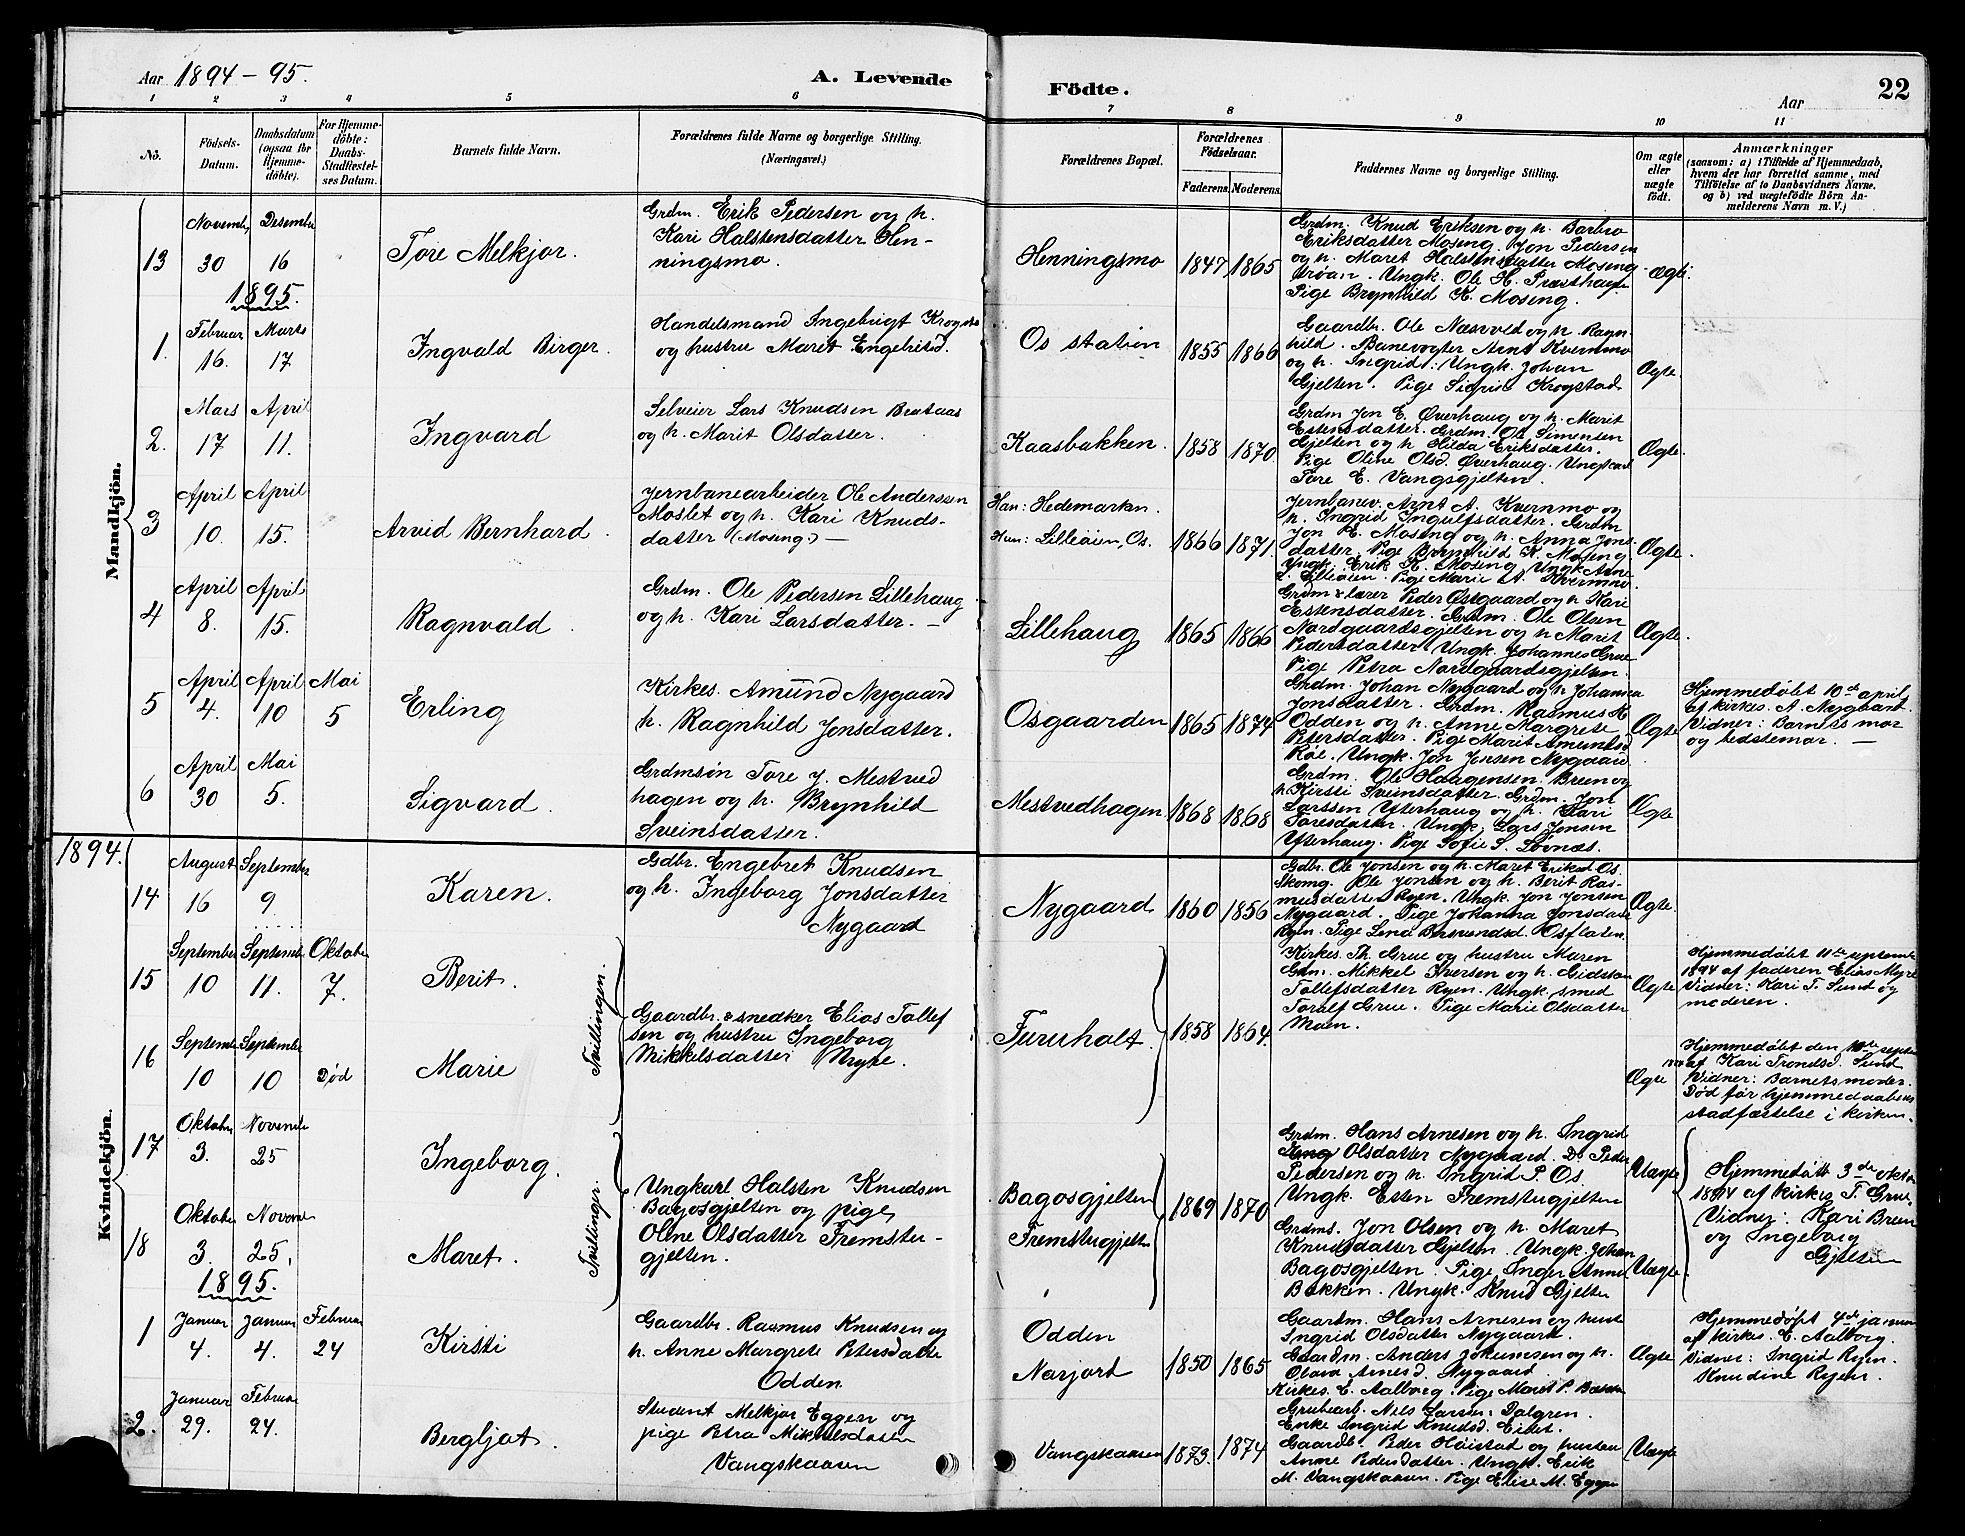 Aar 1894 - 95.
A. Levende
Födte.
Aar
22
1 2 3 4 5 6 7 8 9 10 11
No.
Födsels-
Datum.
Daabsdatum
(ogsaa for
Hjemme-
döbte).
For Hjemme-
döbte:
Daabs-
Stadfæstel-
ses Datum.
Barnets fulde Navn.
Forældrenes fulde Navne og borgerlige Stilling.
(Næringsvei.)
Forældrenes Bopæl.
Forældrenes
Födselsaar.
Faderens. Moderens.
Faddernes Navne og borgerlige Stilling.
Om ægte
eller
uægte
födt.
Anmærkninger
(saasom: a) i Tilfælde af Hjemmedaab,
hvem der har forrettet samme, med
Tilföielse af to Daabsvidners Navne.
og b) ved uægtefödte Börn An-
melderens Navn m. V.)
Mandkjön.
13
Novembr Desembr
30 16
Tore Melkjor.
Grdm. Erik Pedersen og h.
Kari Halstensdatter Hen-
ningsmo.
Henningsmo
1847 1865
Grdm. Knud Eriksen og h. Barbro
Eriksdatter Moseng. Jon Pedersen
og h. Maret Halstensdatter Moseng-
trøan. Ungk. Ole H. Præsthaugn
Pige Brynhild K. Moseng.
ægte.
1895.
1.
Februar Marts
16. 17.
Ingvald Birger.
Handelsmand Ingebrigt Krogstad
og hustru Maret Engebretsd.
Os station
1855 1866
Gaardbr. Ole Næsvold og h. Ragn-
hild. Banevogter Arnt Kvernmo
og h. Ingrid: Ungk. Johan
Gjelten. Pige Sigrid Krogstad.
Ægte.
2.
Mars April
17 11.
Ingvard
Selveier Lars Knudsen Brataas
og h. Marit Olsdatter.
Kaasbakken.
1858 1870
Grdm Jon E. Øverhaug og h. Marit
Estensdatter. Grdm. Ole Simensen
Gjelten og h. Hilda Eriksdatter.
Pige Oline Olsd. Øverhaug. Ungkarl
Tore E. Vangsgjelten.
Ægte.
3
April April
10. 15.
Arvid Bernhard.
Jernbanearbeider Ole Anderssen
Moslet og h. Kari Knuds-
datter (Moseng.) —
Han: Hedemarken.
Hun: Lilleøien, Os.
1866 1871.
Jernbanev. Arnt A. Kvernmo og
h. Ingrid Ingulfsdatter. Grdm
Jon P. Moseng og h. Anna Jons-
datter. Pige Brynhild K. Moseng
Ungk. Erik K. Moseng Ungk Arne
Lilleøien. Pige Marie A. Kvernmo.
Ægte.
4
April April
8. 15.
Ragnvald.
Grdm. Ole Pedersen Lillehaug
og h. Kari Larsdatter. —
Lillehaug
1865 1866
Grdm & lærer Peder Østgaard og h. Kari
Estensdatter. Grdm. Ole Olsen
Nordgaardsgjelten og h Marit
Pedersdatter. Ungk. Johannes Grue
Pige Petra Nordgaardsgjelten.
Ægte.
5
April April Mai
4. 10 5
Erling
Kirkes. Amund Nygaard
h. Ragnhild Jonsdatter.
Osgaarden
1865 1874
Grdm. Johan Nygaard og h Johanna
Jonsdatter. Grdm. Rasmus K
Odden og h. Anne Margrete
Petersdatter. Pige Marit Amundsd
Røe. Ungk. Jon Jonsen Nygaard
Ægte
Hjemmedøbt 10de april,
af kirkes. A. Nygaard.
Vidner: Barnets mor
og bedstemor. —
6
April Mai
30 5.
Sigvard.
Grdmsøn Tore J. Mestved
hagen og h. Brynhild
Sveinsdatter.
Mestvedhagen
1868 1868
Grdm. Ole Haagensen Breen og
h. Kirsti Sveinsdatter. Grdm. Jon
Larssen Ytterhaug og h. Kari
Toresdatter. Ungk. Lars Jonsen
Ytterhaug. Pige Sofie S. Løvnæs.
Ægte
Kvindekjön.
1894.
14
August September
16 9
Karen.
Gdbr. Engebret Knudsen
og h. Ingeborg Jonsdatter
Nygaard
Nygaard
1860 1856
Gdbr. Ole Jonsen og h. Maret Eriksd Os.
Skomg. Ole Jonsen og h. Berit Ras-
musdatter Ryen. Ungk. Jon Jonsen
Nygaard. Pige Johanna Jonsdatr
Ryen. Pige Lena Osfloten.
Ægte.
15
September Septembr Oktober
10 11. 7.
Berit.
Tvillinger.
Gaardbr. & snedker Elias Tollef
sen og hustru Ingeborg
Mikkelsdatter Myre.
Furuholt.
1858 1864.
Kirkes. Th. Grue og hustru Maren
Gdm. Mikkel Iversen og h. Gidsken
Tollefsdatter Ryen. Ungk. smed
Toralf Grue. Pige Marie Olsdatter
Moen.
Ægte
Hjemmedøbt 11te septembr
1894 af faderen Elias Myre
Vidner: Kari T. Sund og
moderen.
16
Septembr Septembr
10 10 Død
Marie
Ægte
Hjemmedøbt den 10de septbr
af Kari Trondsd. Sund
Vidner: Barnets moder.
Død før hjemmedaabens
stadfæstelse i kirken.
17
Oktober Novembr
3. 25
Ingeborg.
Tvillinger.
Ungkarl Halsten Knudsen
Bagosgjelten og pige
Oline Olsdatter Fremstu-
gjelten.
Bagosgjelten
Fremstugjelten
1869 1870
Grdm. Hans Arnesen og h. Ingrid
Olsdatter Nygaard. Do Peder
Pedersen og h. Ingrid P. Os.
Ungk. Esten Fremstugjelten
Uægte
Hjemmedøbt 3de oktbr
1894 af kirkes T. Grue.
Vidner: Kari Breen
og Ingeborg
Gjelten
18
Oktober Novembr
3. 25.
Maret.
Grdms. Jon Olsen og h. Maret
Knudsdatter Gjelten. Ungk. Johan
Bagosgjelten. Pige Inger Anna
Bakken. Ungk. Knud Gjelten
Uægte.
1895.
1
Januar Januar Februar
4. 4. 24
Kirsti
Gaardbr. Rasmus Knudsen og
h. Anne Margrete Petersdatter
Odden.
Odden
Narjord
1850 1865
Gaardm. Hans Arnesen og hustru
Ingrid Olsdatter Nygaard.
Gaardm. Anders Jokumsen og h.
Olava Arnesd. Nygaard
Kirkes. E. Aalborg. Pige Maret P. Bakken
Ægte
Hjemmedøbt 4de januar
af kirkes. E. Aalborg.
Vidner: Ingrid Ryen.
Knudine Ryen.
2.
Januar Februar
29. 24.
Bergljot.
Student Melkjor Eggen og
pige Petra Mikkelsdatter
Vangskaasen
Vangskaasen
1873. 1874
Grubearb. Nils Larsen Dalgren.
Enke Ingrid Knudsd. Eidet.
Gaardb. Peder Høistad og hustru
Anne Pedersdatter. Ungk. Erik
M. Vangskaasen. Pige Elise M. Eggen
Uægte